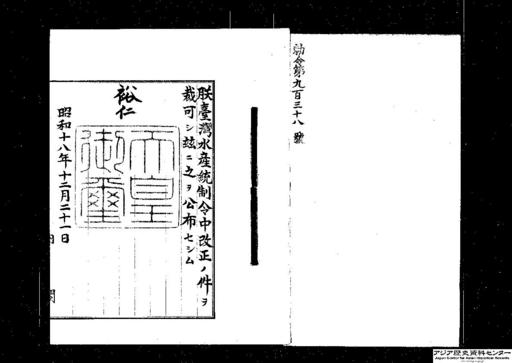 勅令第九百三十八號
朕臺灣水産統制令中改正ノ件ヲ
裁可シ玆ニ之ヲ公布セシム
裕仁
天皇御璽
昭和十八年十二月二十一日
内閣
アジア歴史資料センター
Japan Center for Asian Historical Records